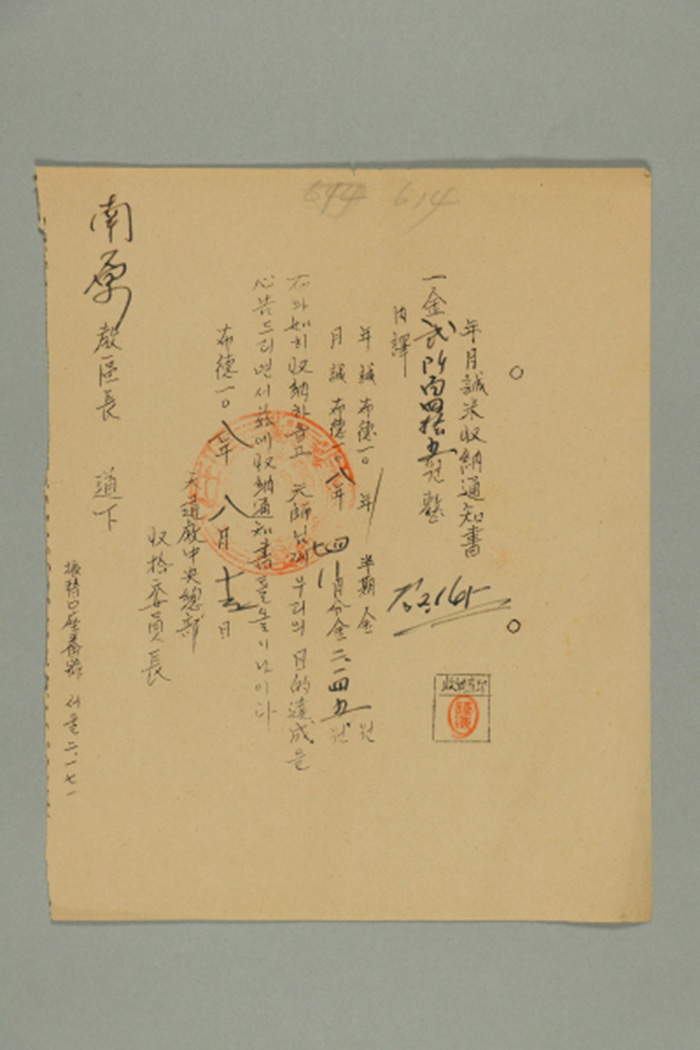 614
年月誠米収納通知書
一金貳阡百四拾五원整
内譯
年誠 布德一〇 年 半期 金 원
月誠 布德一〇八年 四 七月分金二、一四五원
右와如히収納하옵고 天師님께 우리의 目的達成을
心告드리면서 玆에収納通知書를 올이나이다
布德一〇八年八月十三日
天道敎中央總部
収拾委員長
南原 敎區長 道下
振替口座番號 서울 二、一七一
収納済印